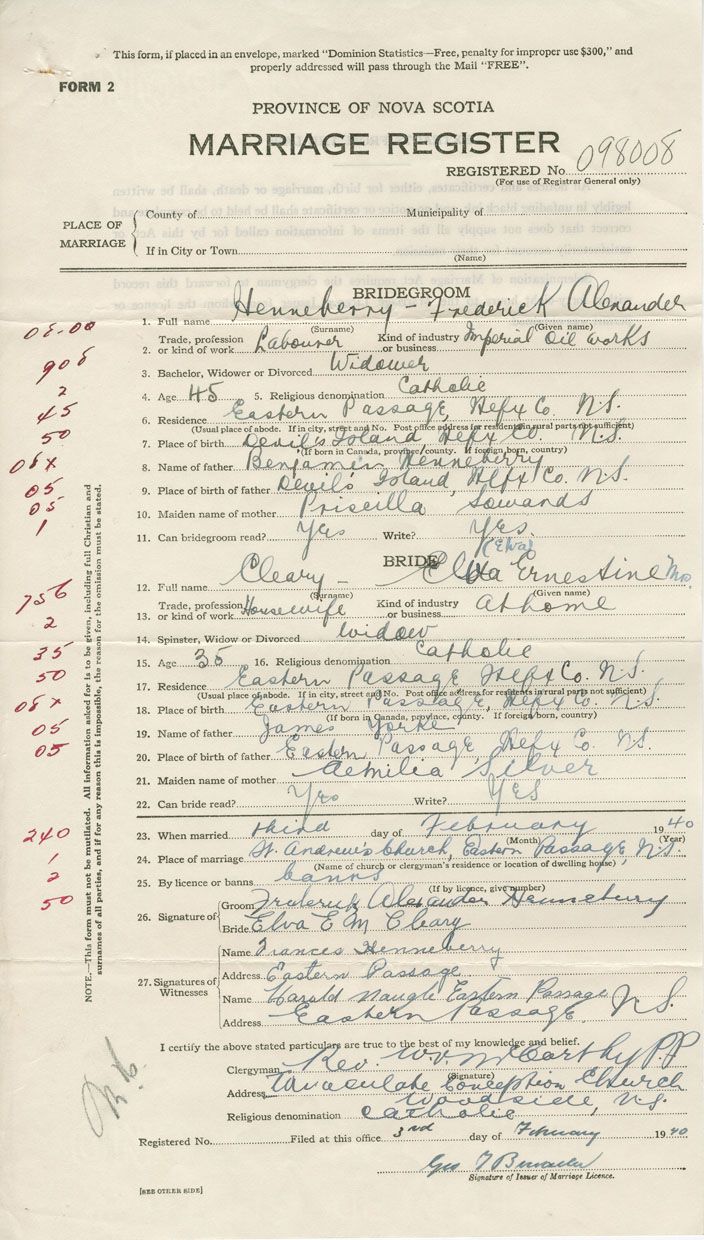 This form, if placed in an envelope, marked "Dominion Statistics—Free, penalty for improper use $300," and
properly addressed will pass through the Mail "FREE".
FORM 2
PROVINCE OF NOVA SCOTIA
MARRIAGE REGISTER
REGISTERED No. 098008
(For use of Registrar General only)
PLACE OF MARRIAGE
County of Municipality of
If in City or Town
(Name)
BRIDEGROOM
1. Full name Henneberry - Frederick Alexander
(Surname) (Given name)
2. Trade, profession or kind of work Labourer Kind of industry or business Imperial Oil Works
3. Bachelor, Widower or Divorced Widower
4. Age 45 5. Religious denomination Catholic
6. Residence Eastern Passage, Hefx Co. N.S.
(Usual place of abode. If in city, street and No. Post office address for residents in rural parts not sufficient)
7. Place of birth Devil's Island Hefx Co. N.S.
(If born in Canada, province, county. If foreign born, country)
8. Name of father Benjamin Henneberry
9. Place of birth of father Devils Island, Hefx Co. N.S.
10. Maiden name of mother Priscilla Sowands
11. Can bridegroom read? Yes Write? Yes.
(Elva)
BRIDE
12. Full name Cleary - Elva Ernestine Mrs.
(Surname) (Given name)
13. Trade, profession or kind of work Housewife Kind of industry or business At home
14. Spinster, Widow or Divorced Widow
15. Age 35 16. Religious denomination Catholic
17. Residence Eastern Passage Hefx Co. N.S.
(Usual place of abode. If in city, street and No. Post office address for residents in rural parts not sufficient)
18. Place of birth Eastern Passage, Hefx Co. N.S.
(If born in Canada, province, county. If foreign born, country)
19. Name of father James Yorke
20. Place of birth of father Eastern Passage, Hefx Co. N.S.
21. Maiden name of mother Aemilia Silver
22. Can bride read? Yes Write? YES
23. When married third day of February 1940
(Month) (Year)
24. Place of marriage St. Andrew's Church, Eastern Passage, N.S.
(Name of church or clergyman's residence or location of dwelling house)
25. By licence or banns banns
(If by licence, give number)
26. Signature of
Groom Frederick Alexander Henneberry
Bride Elva E M Cleary
27. Signatures of Witnesses
Name Frances Henneberry
Address Eastern Passage
Name Harold Naugle Eastern Passage
Address Eastern Passage, N.S.
I certify the above stated particulars are true to the best of my knowledge and belief.
Clergyman Rev. W.V. McCarthy P.P
(Signature)
Address Immaculate Conception Church
Woodside, N.S.
Religious denomination Catholic
Registered No. Filed at this office 3rd day of February 1940
Signature of Issuer of Marriage Licence.
[SEE OTHER SIDE]
NOTE.—This form must not be mutilated. All information asked for is to be given, including full Christian and
surnames of all parties, and if for any reason this is impossible, the reason for the omission must be stated.
08-00
908
2
45
50
08x
05
05
1
756
2
35
50
08x
05
05
240
1
2
50